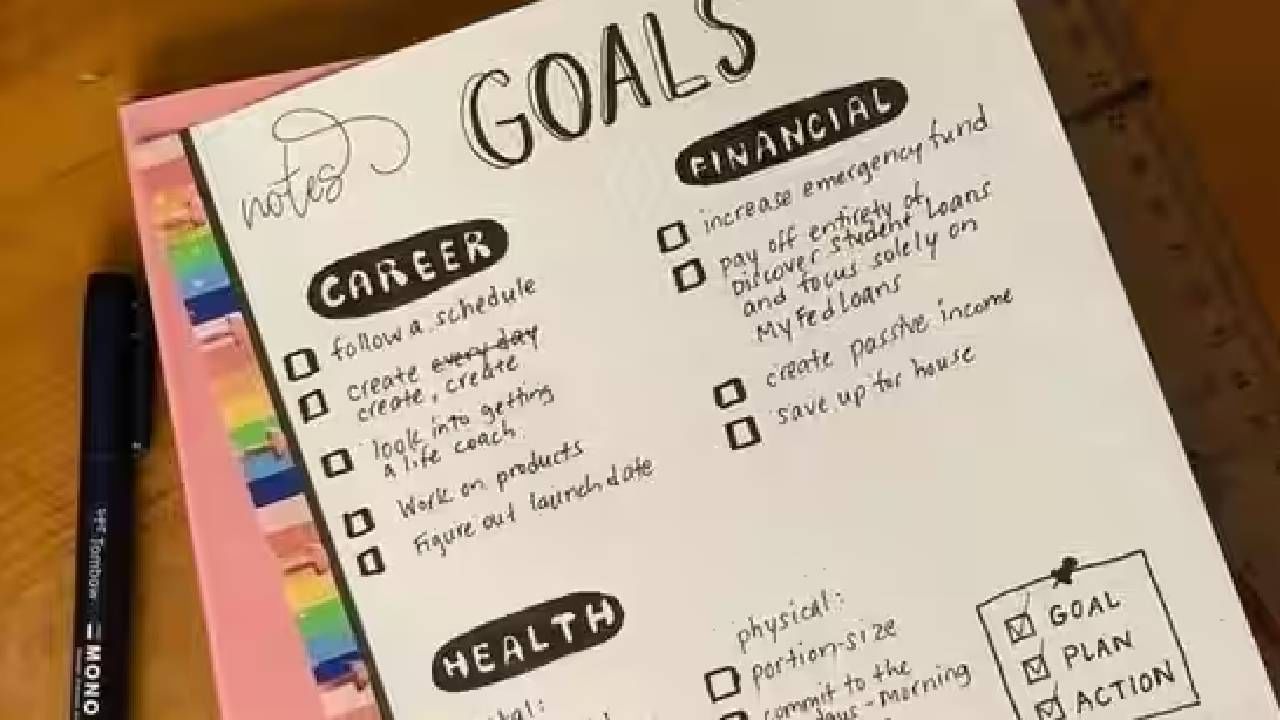 GOALS
notes
CAREER
follow a schedule
create every day
create, create
look into getting
a life coach
Work on products
Figure out launch date
FINANCIAL
increase emergency fund
pay off entirety of
Discover student loans
and focus solely on
MyFedLoans
create passive income
save up for house
HEALTH
physical:
portion-size
commit to the
- Morning
GOAL
PLAN
ACTION
Tombow
MONO